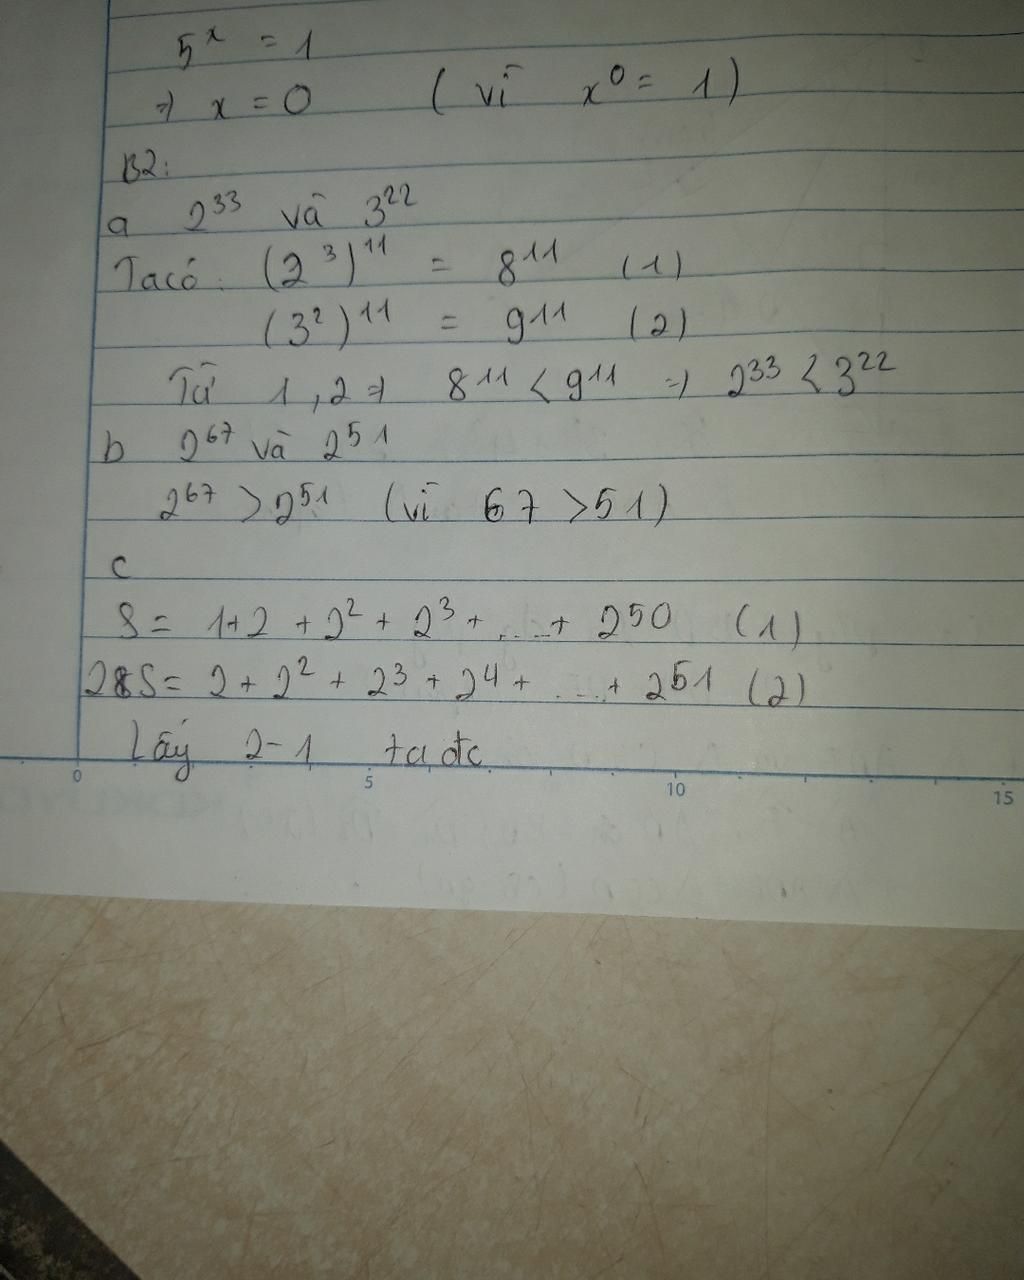 5^x = 1
=> x = 0 ( vì x^0 = 1 )
B2:
a 2^33 và 3^22
Ta có : (2^3)^11 = 8^11 (1)
(3^2)^11 = 9^11 (2)
Từ 1 , 2 => 8^11 < 9^11 => 2^33 < 3^22
b 2^67 và 2^51
2^67 > 2^51 (vì 67 > 51)
c
S = 1 + 2 + 2^2 + 2^3 + .... + 2^50 (1)
2S = 2 + 2^2 + 2^3 + 2^4 + .... + 2^51 (2)
Lấy 2 - 1 ta đc
0 5 10 15